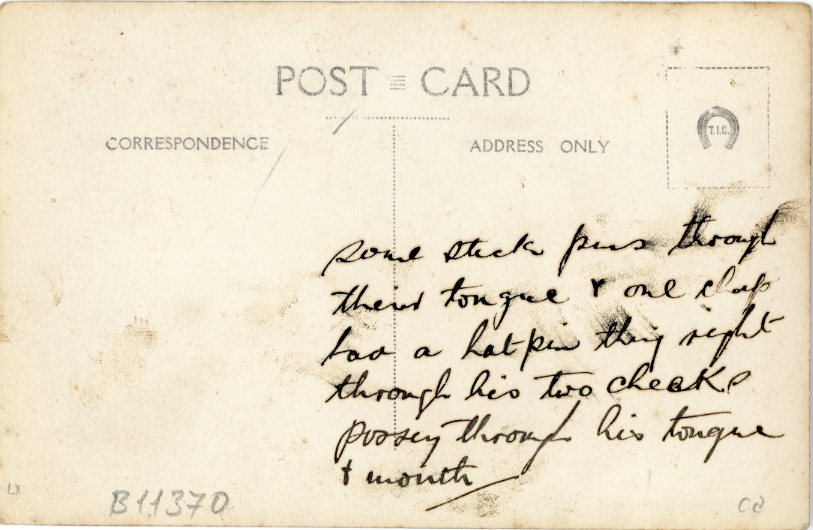 POST CARD
CORRESPONDENCE
ADDRESS ONLY
T.I.C.
some stick pins through
their tongue & one chap
has a hatpin thing right
through his two cheeks
passing through his tongue
& mouth
B11370